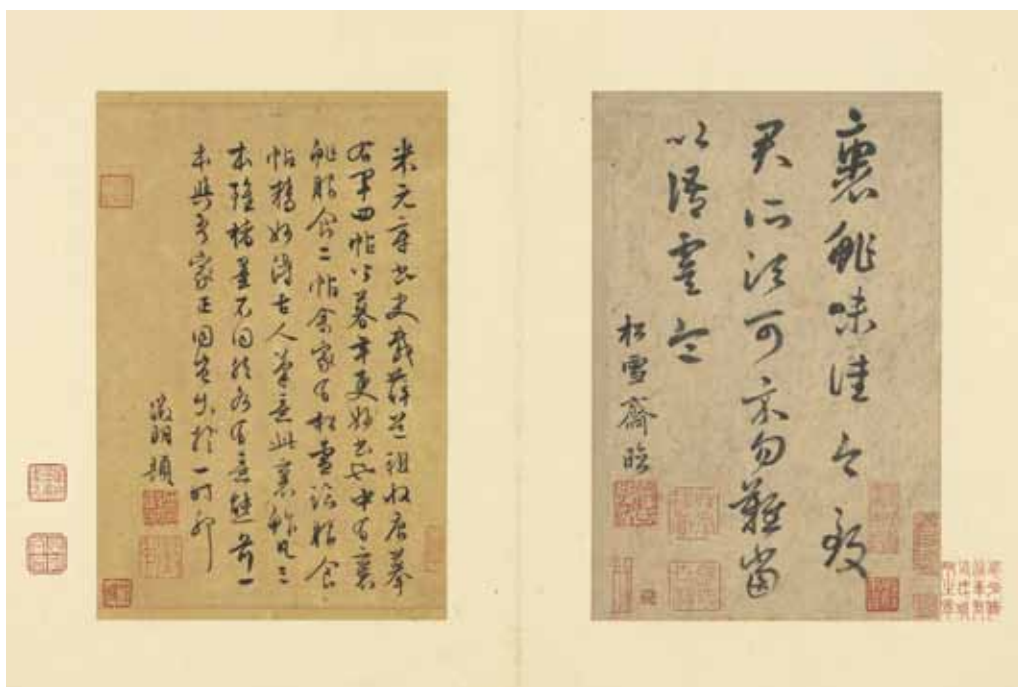 裹鮓味佳今致
君所須可示勿難當
以語虞令
松雪齋臨
米元章書史載薛道祖收唐摹
右軍四帖乃暮年更妙書也中有裹
鮓脂食二帖余家有松雪臨脂食
帖精妙得古人筆意此裹鮓凡三
本雖楮墨不同然各有意態前一
本與吾家正同豈出於一時耶
徵明題